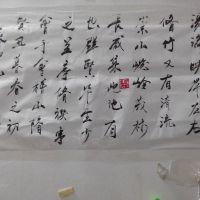 癸丑暮春之初
會于會稽山陰
之蘭亭脩禊事
也群賢畢至少
長咸集此地有
崇山峻嶺茂林
脩竹又有清流
湍映帶左右